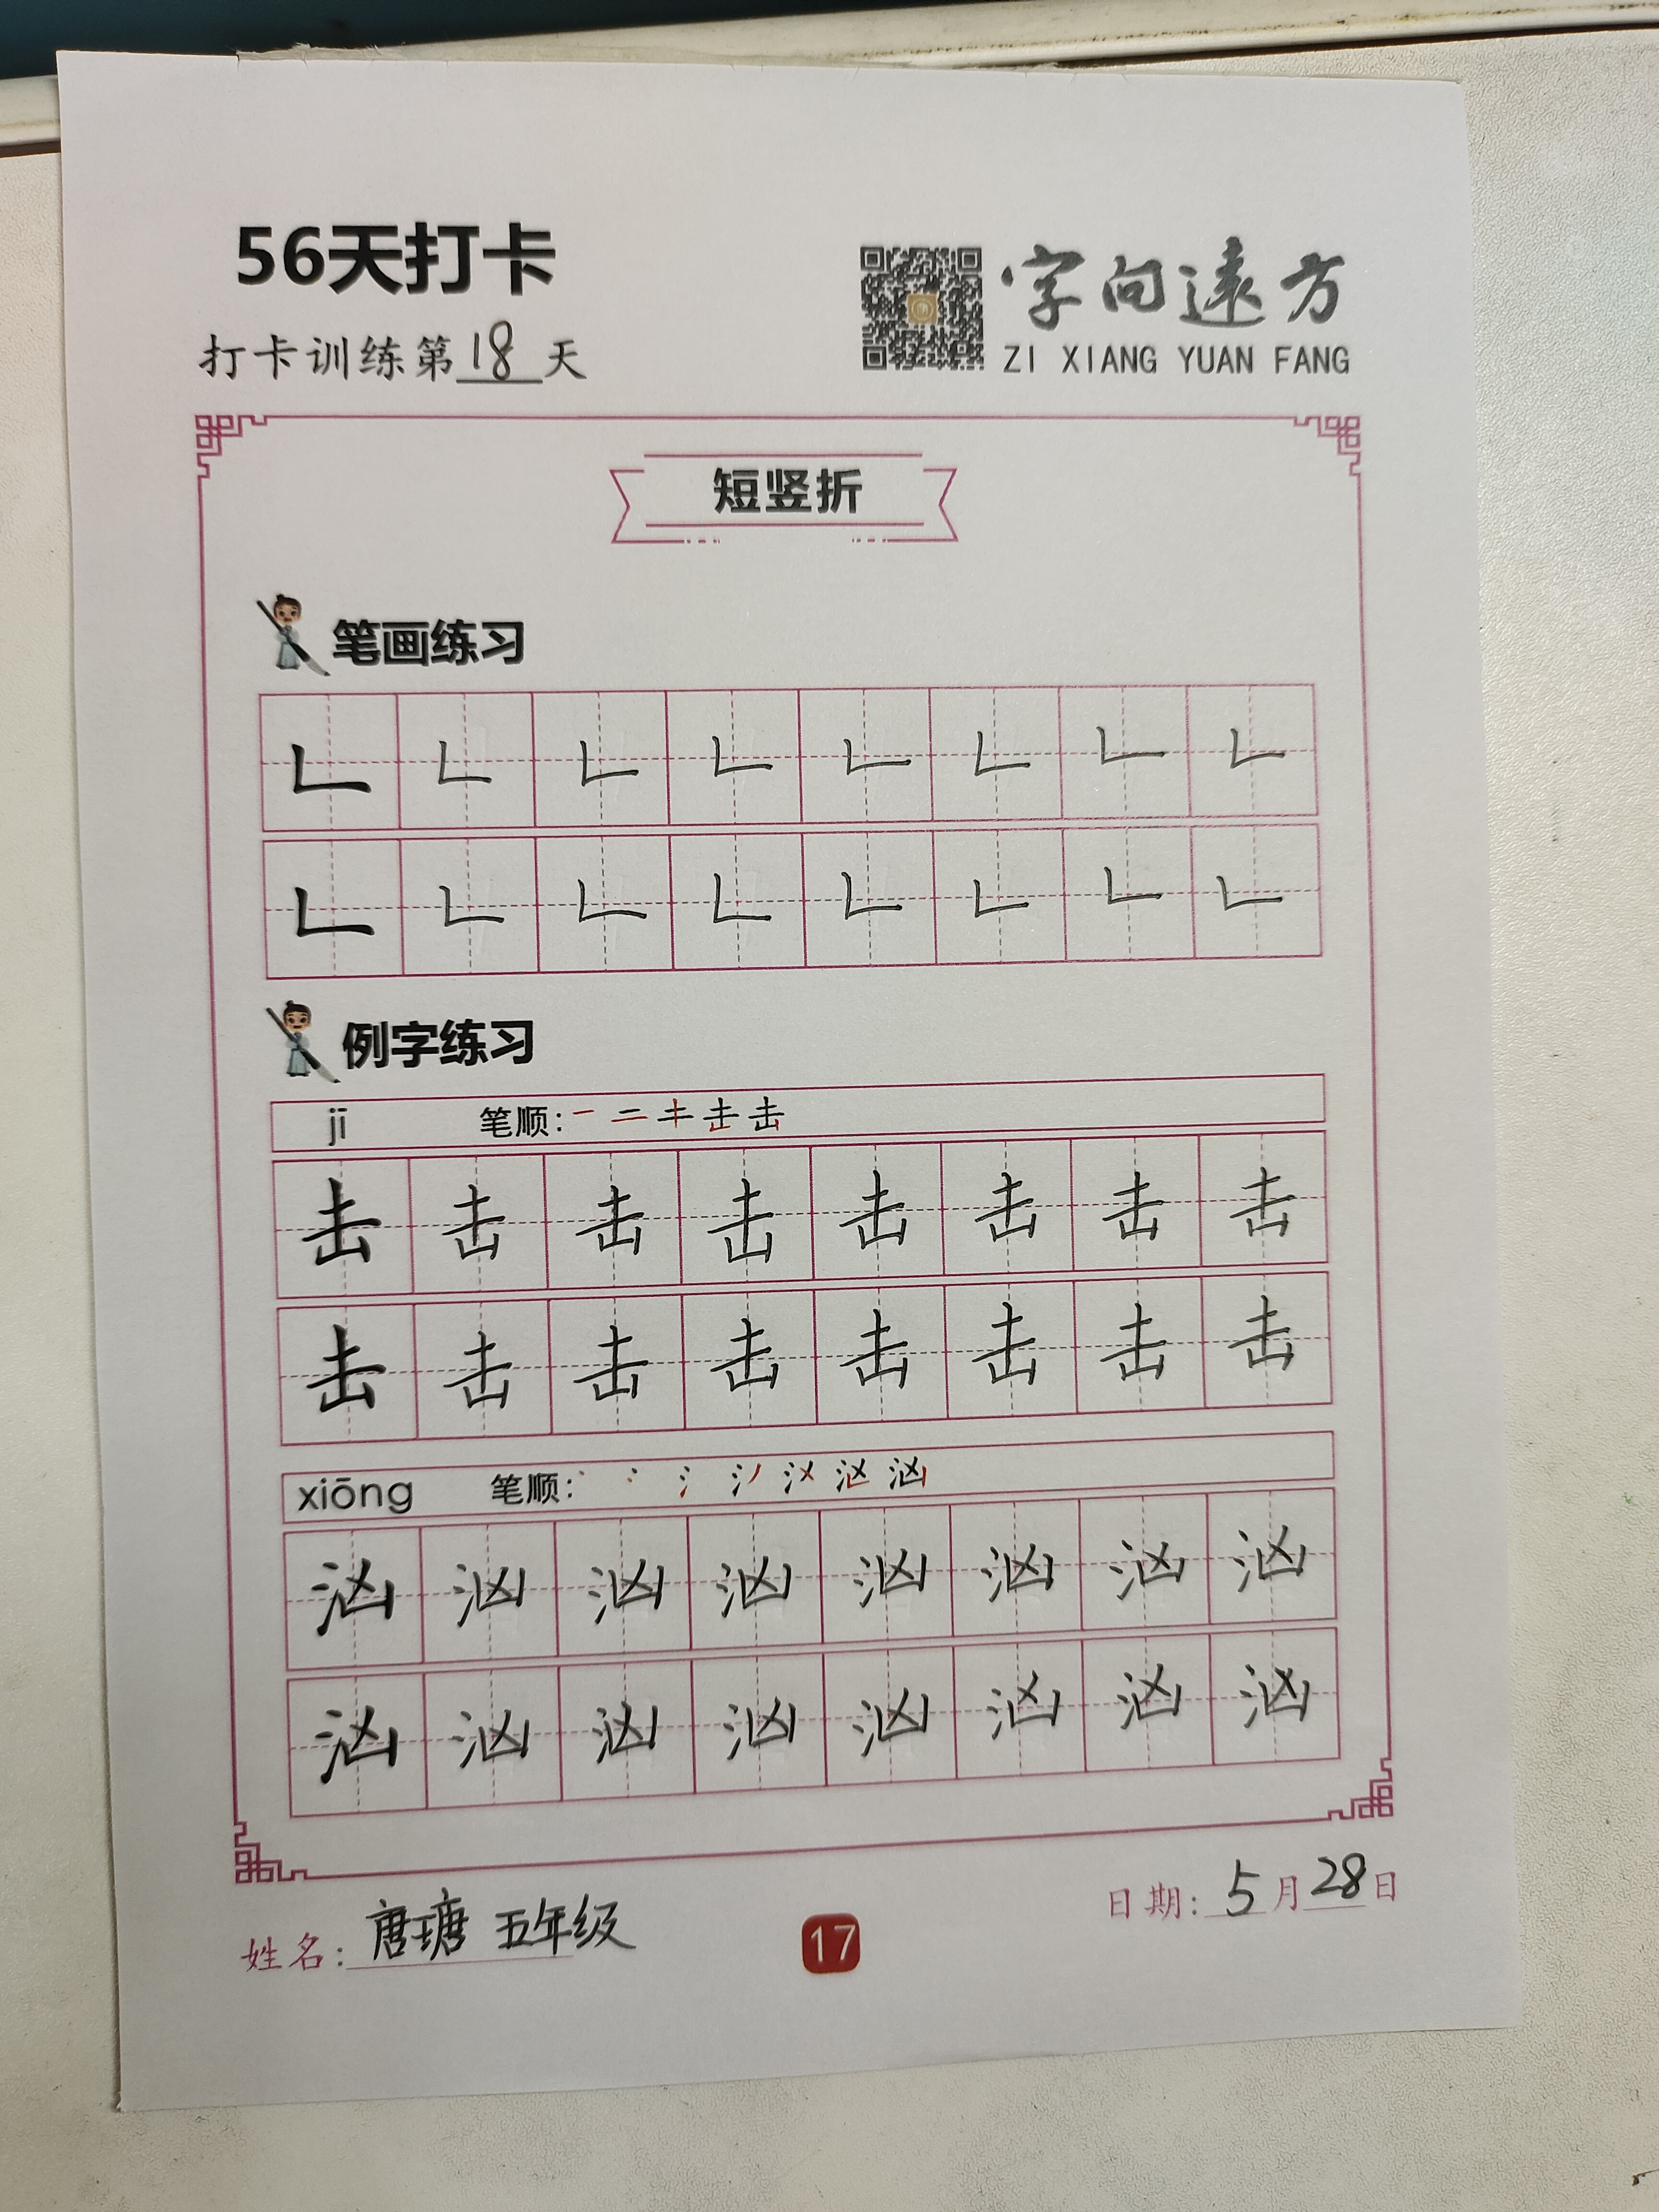 56天打卡
打卡训练第18天
字向遠方
ZI XIANG YUAN FANG
短竖折
笔画练习
𠃊 𠃊 𠃊 𠃊 𠃊 𠃊 𠃊 𠃊
𠃊 𠃊 𠃊 𠃊 𠃊 𠃊 𠃊 𠃊
例字练习
jī 笔顺: 一 二 キ 击 击
击 击 击 击 击 击 击 击
击 击 击 击 击 击 击 击
xiōng 笔顺: 汹
汹 汹 汹 汹 汹 汹 汹 汹
汹 汹 汹 汹 汹 汹 汹 汹
姓名: 唐瑭 五年级
17
日期: 5月28日